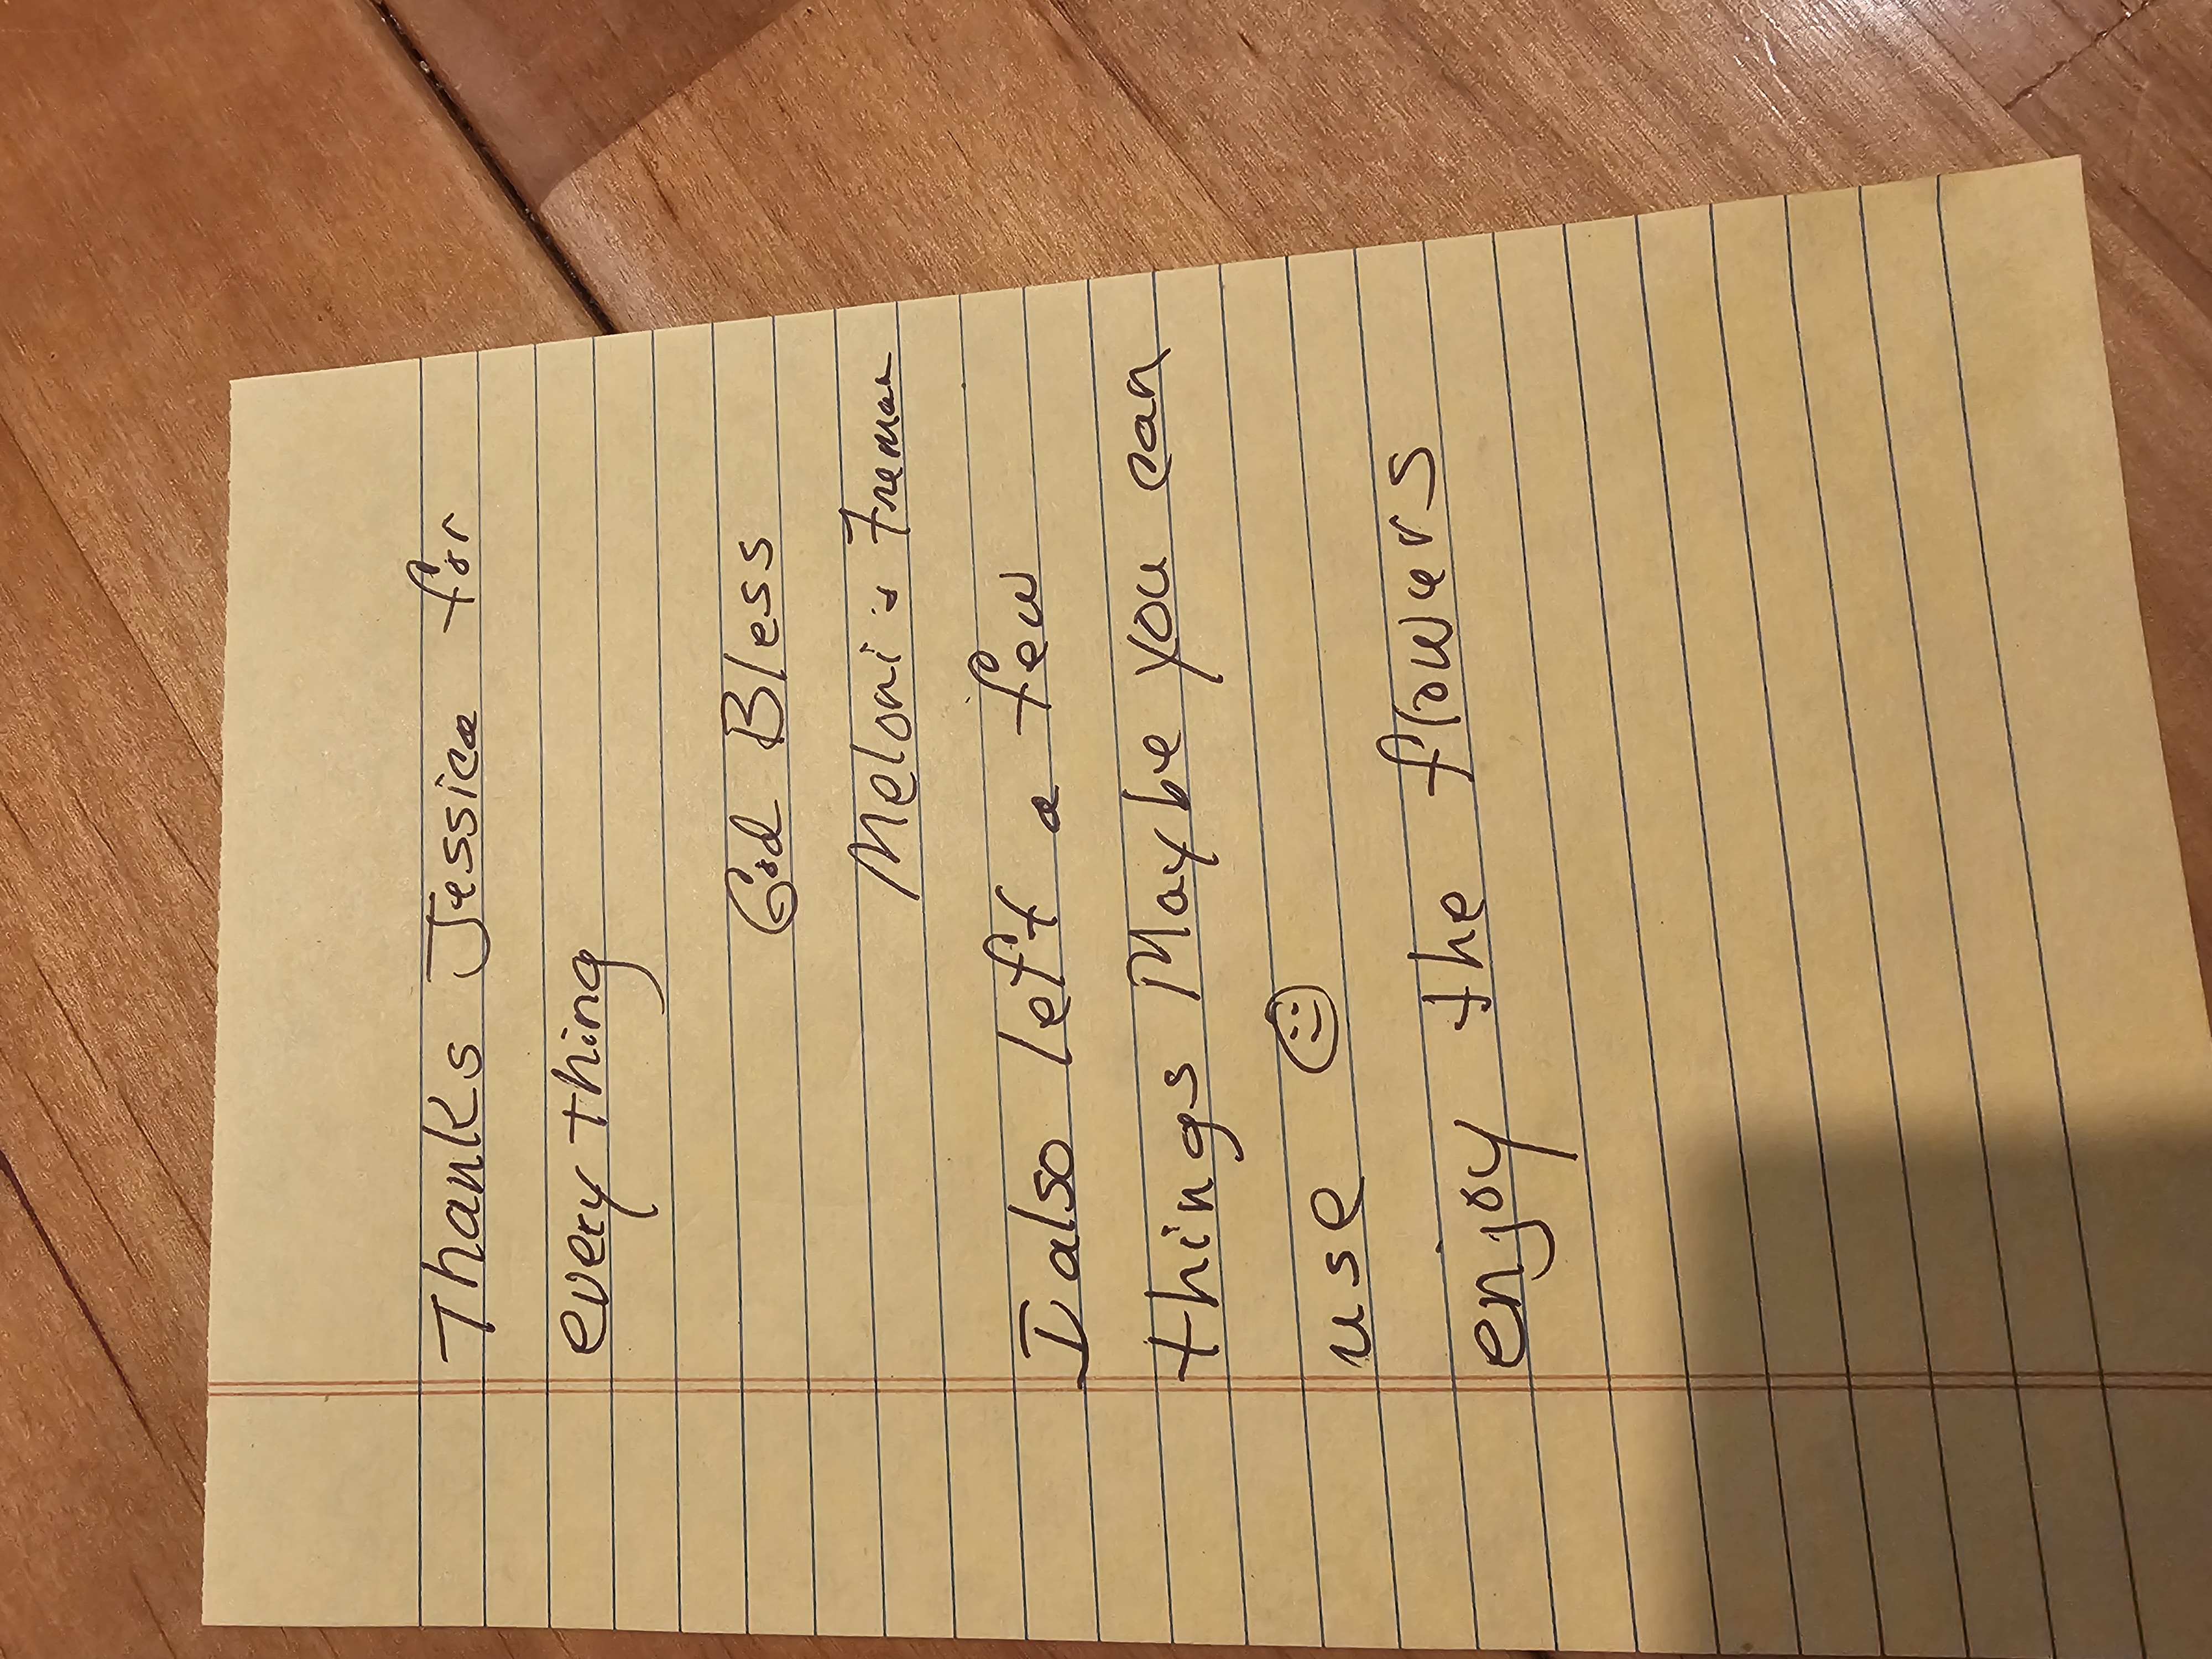 Thanks Jessica for
every thing
God Bless
Meloni & Freman
I also left a few
things Maybe you can
use ☺
enjoy the flowers